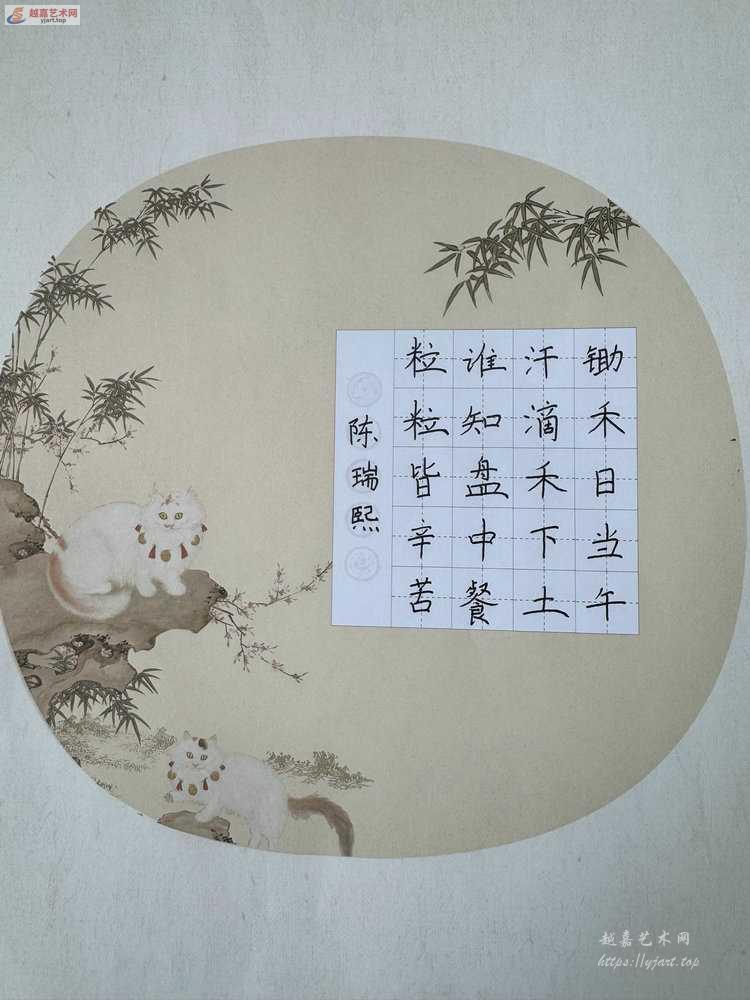 越嘉艺术网
yjart.top
锄禾日当午
汗滴禾下土
谁知盘中餐
粒粒皆辛苦
陈瑞熙
越嘉艺术网
https://yjart.top